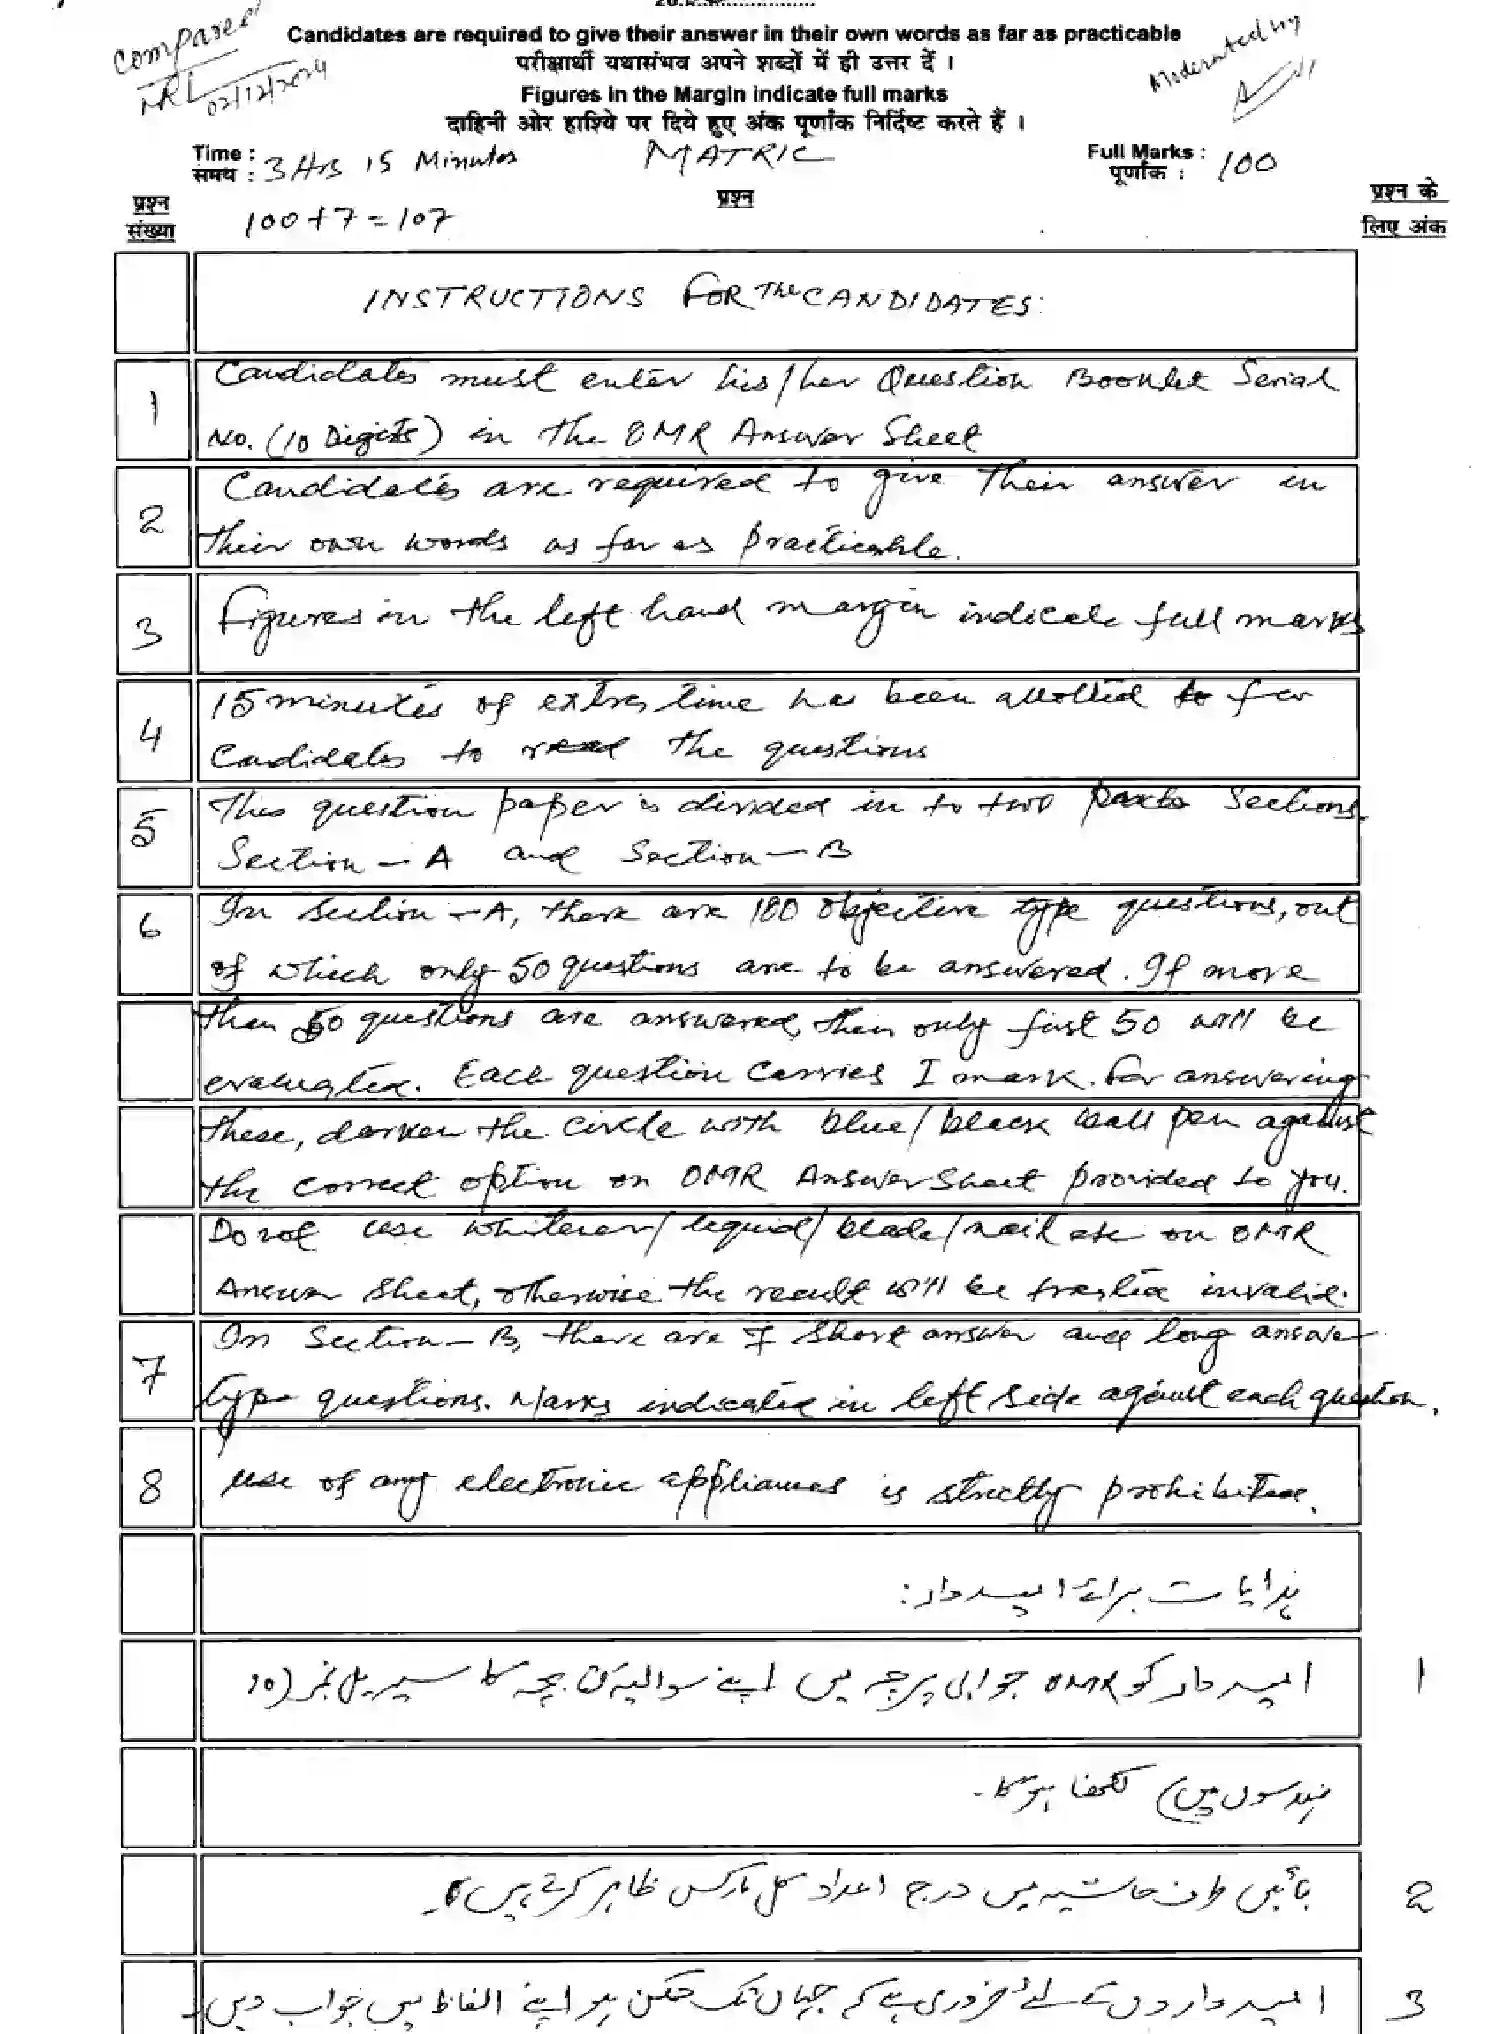 Compared
02/12/2024
Moderated by
Candidates are required to give their answer in their own words as far as practicable
परीक्षार्थी यथासंभव अपने शब्दों में ही उत्तर दें ।
Figures in the Margin indicate full marks
दाहिनी ओर हाशिये पर दिये हुए अंक पूर्णांक निर्दिष्ट करते हैं ।
Time : 3 Hrs 15 Minutes MATRIC Full Marks : 100
समय : पूर्णांक :
प्रश्न संख्या 100+7=107 प्रश्न प्रश्न के लिए अंक
INSTRUCTIONS FOR The CANDIDATES:
1 Candidates must enter his/her Question Booklet Serial
No. (10 Digits) in the OMR Answer Sheet
2 Candidates are required to give their answer in
their own words as far as practicable.
3 Figures in the left hand margin indicate full marks
4 15 minutes of extra time has been allotted to for
Candidates to read the questions
5 This question paper is divided in to two Parts Sections.
Section - A and Section - B
6 In Section - A, there are 100 objective type questions, out
of which only 50 questions are to be answered. If more
than 50 questions are answered, then only first 50 will be
evaluated. Each question carries 1 mark. For answering
these, darken the circle with blue/black ball pen against
the correct option on OMR Answer Sheet provided to you.
Do not use whitener/liquid/blade/nail etc on OMR
Answer Sheet, otherwise the result will be treated invalid.
7 In Section - B, there are short answer and long answer
type questions. Marks indicated in left side against each question.
8 use of any electronic appliances is strictly prohibited.
ہدایات برائے امیدوار:
1 امیدوار کو OMR جوابی پرچہ میں اپنے سوالیہ کتابچہ کا سیریل نمبر (10
ہندسوں میں) لکھنا ہوگا۔
2 بائیں طرف حاشیہ میں درج اعداد کل مارکس ظاہر کرتے ہیں۔
3 امیدواروں کے لئے ضروری ہے کہ جہاں تک ممکن ہو اپنے الفاظ میں جواب دیں۔